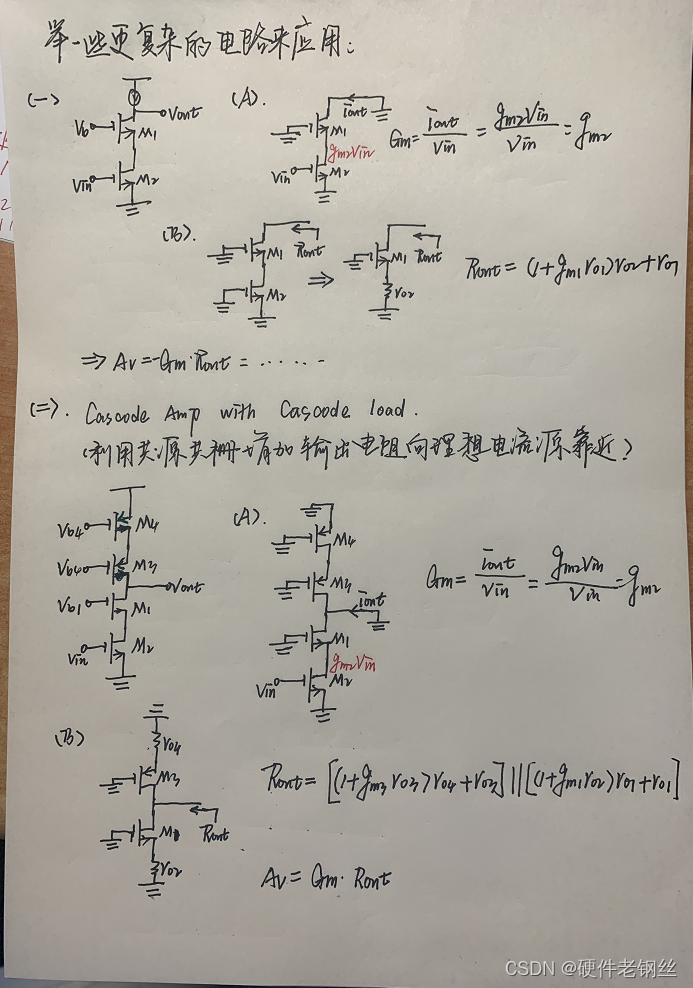 举一些更复杂的电路来应用:
(一)
Vb
M1
Vout
Vin
M2
(A).
iout
M1
gm2Vin
Vin
M2
Gm = iout/Vin = gm2Vin/Vin = gm2
(B).
M1
Rout
M2
⇒
M1
Rout
ro2
Rout = (1+gm1ro1)ro2+ro1
⇒ Av = -Gm·Rout = ......
(二). Cascode Amp with Cascode load.
(利用共源共栅增加输出电阻向理想电流源靠近)
Vb4
M4
Vb4
M3
Vout
Vb1
M1
Vin
M2
(A).
M4
M3
iout
M1
gm2Vin
Vin
M2
Gm = iout/Vin = gm2Vin/Vin = gm2
(B)
ro4
M3
M1
Rout
ro2
Rout = [(1+gm3ro3)ro4+ro3]||[(1+gm1ro2)ro1+ro1]
Av = Gm·Rout
CSDN @硬件老钢丝